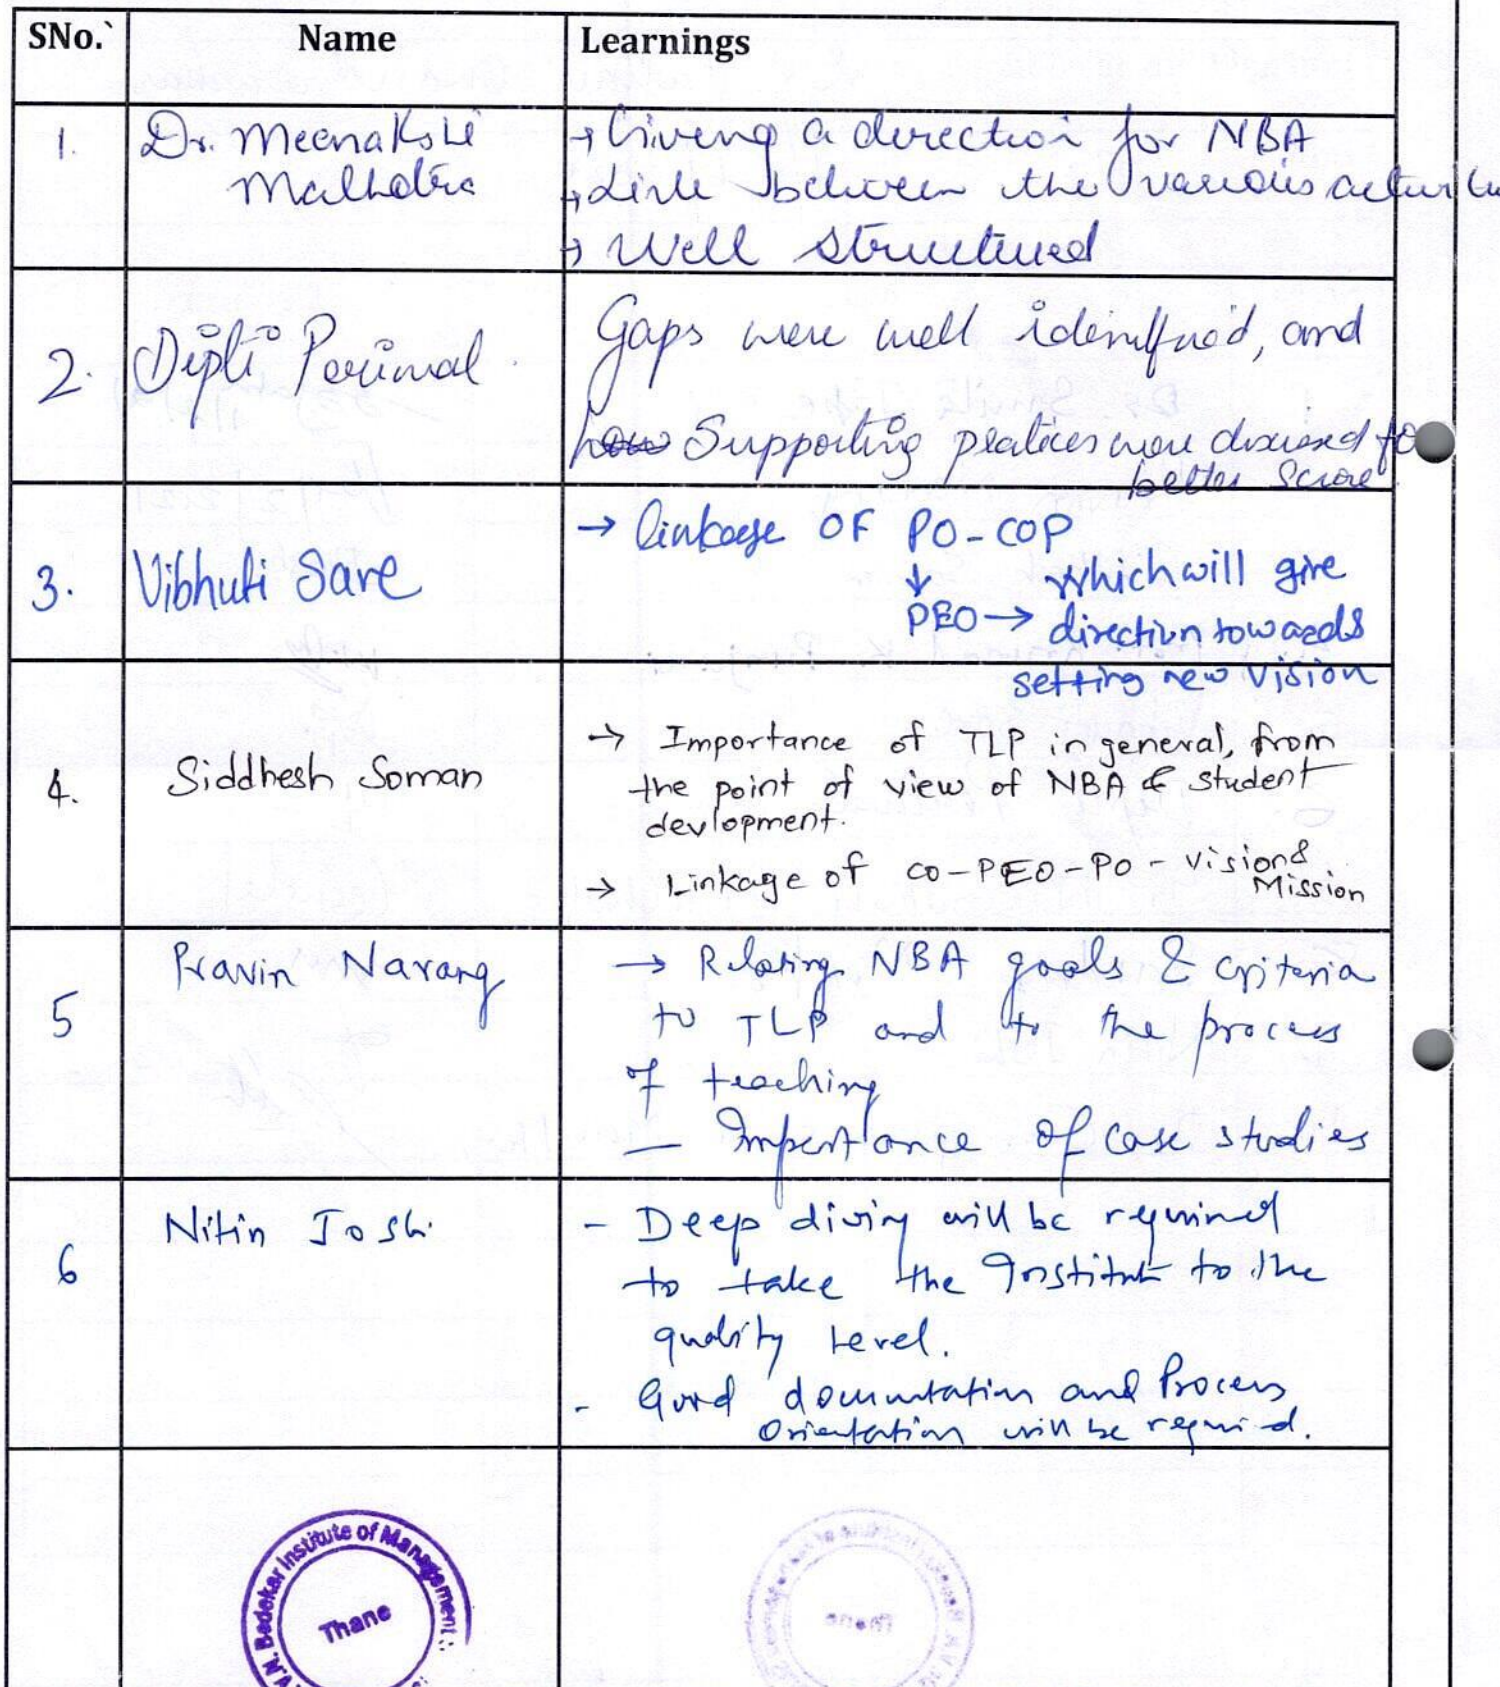 SNo.`
Name
Learnings
1.
Dr. Meenakshi
Malhotra
→ Giving a direction for NBA
→ Link between the various
→ Well structured
2.
Dipti Periwal
Gaps were well identified, and
how Supporting were discussed for
better Score
3.
Vibhuti Save
→ linkage OF PO-COP
↓ Which will give
PEO → direction towards
setting new Vision
4.
Siddhesh Soman
→ Importance of TLP in general, from
the point of view of NBA & student
devlopment.
→ Linkage of CO-PEO-PO - Vision &
Mission
5
Pravin Narang
→ Relating NBA goals & criteria
to TLP and to the process
of teaching
— Importance of case studies
6
Nitin Joshi
- Deep diving will be required
to take the Institute to the
quality level.
- Good and Process
Orientation will be required.
V.N. Bedekar Institute of Management
Thane